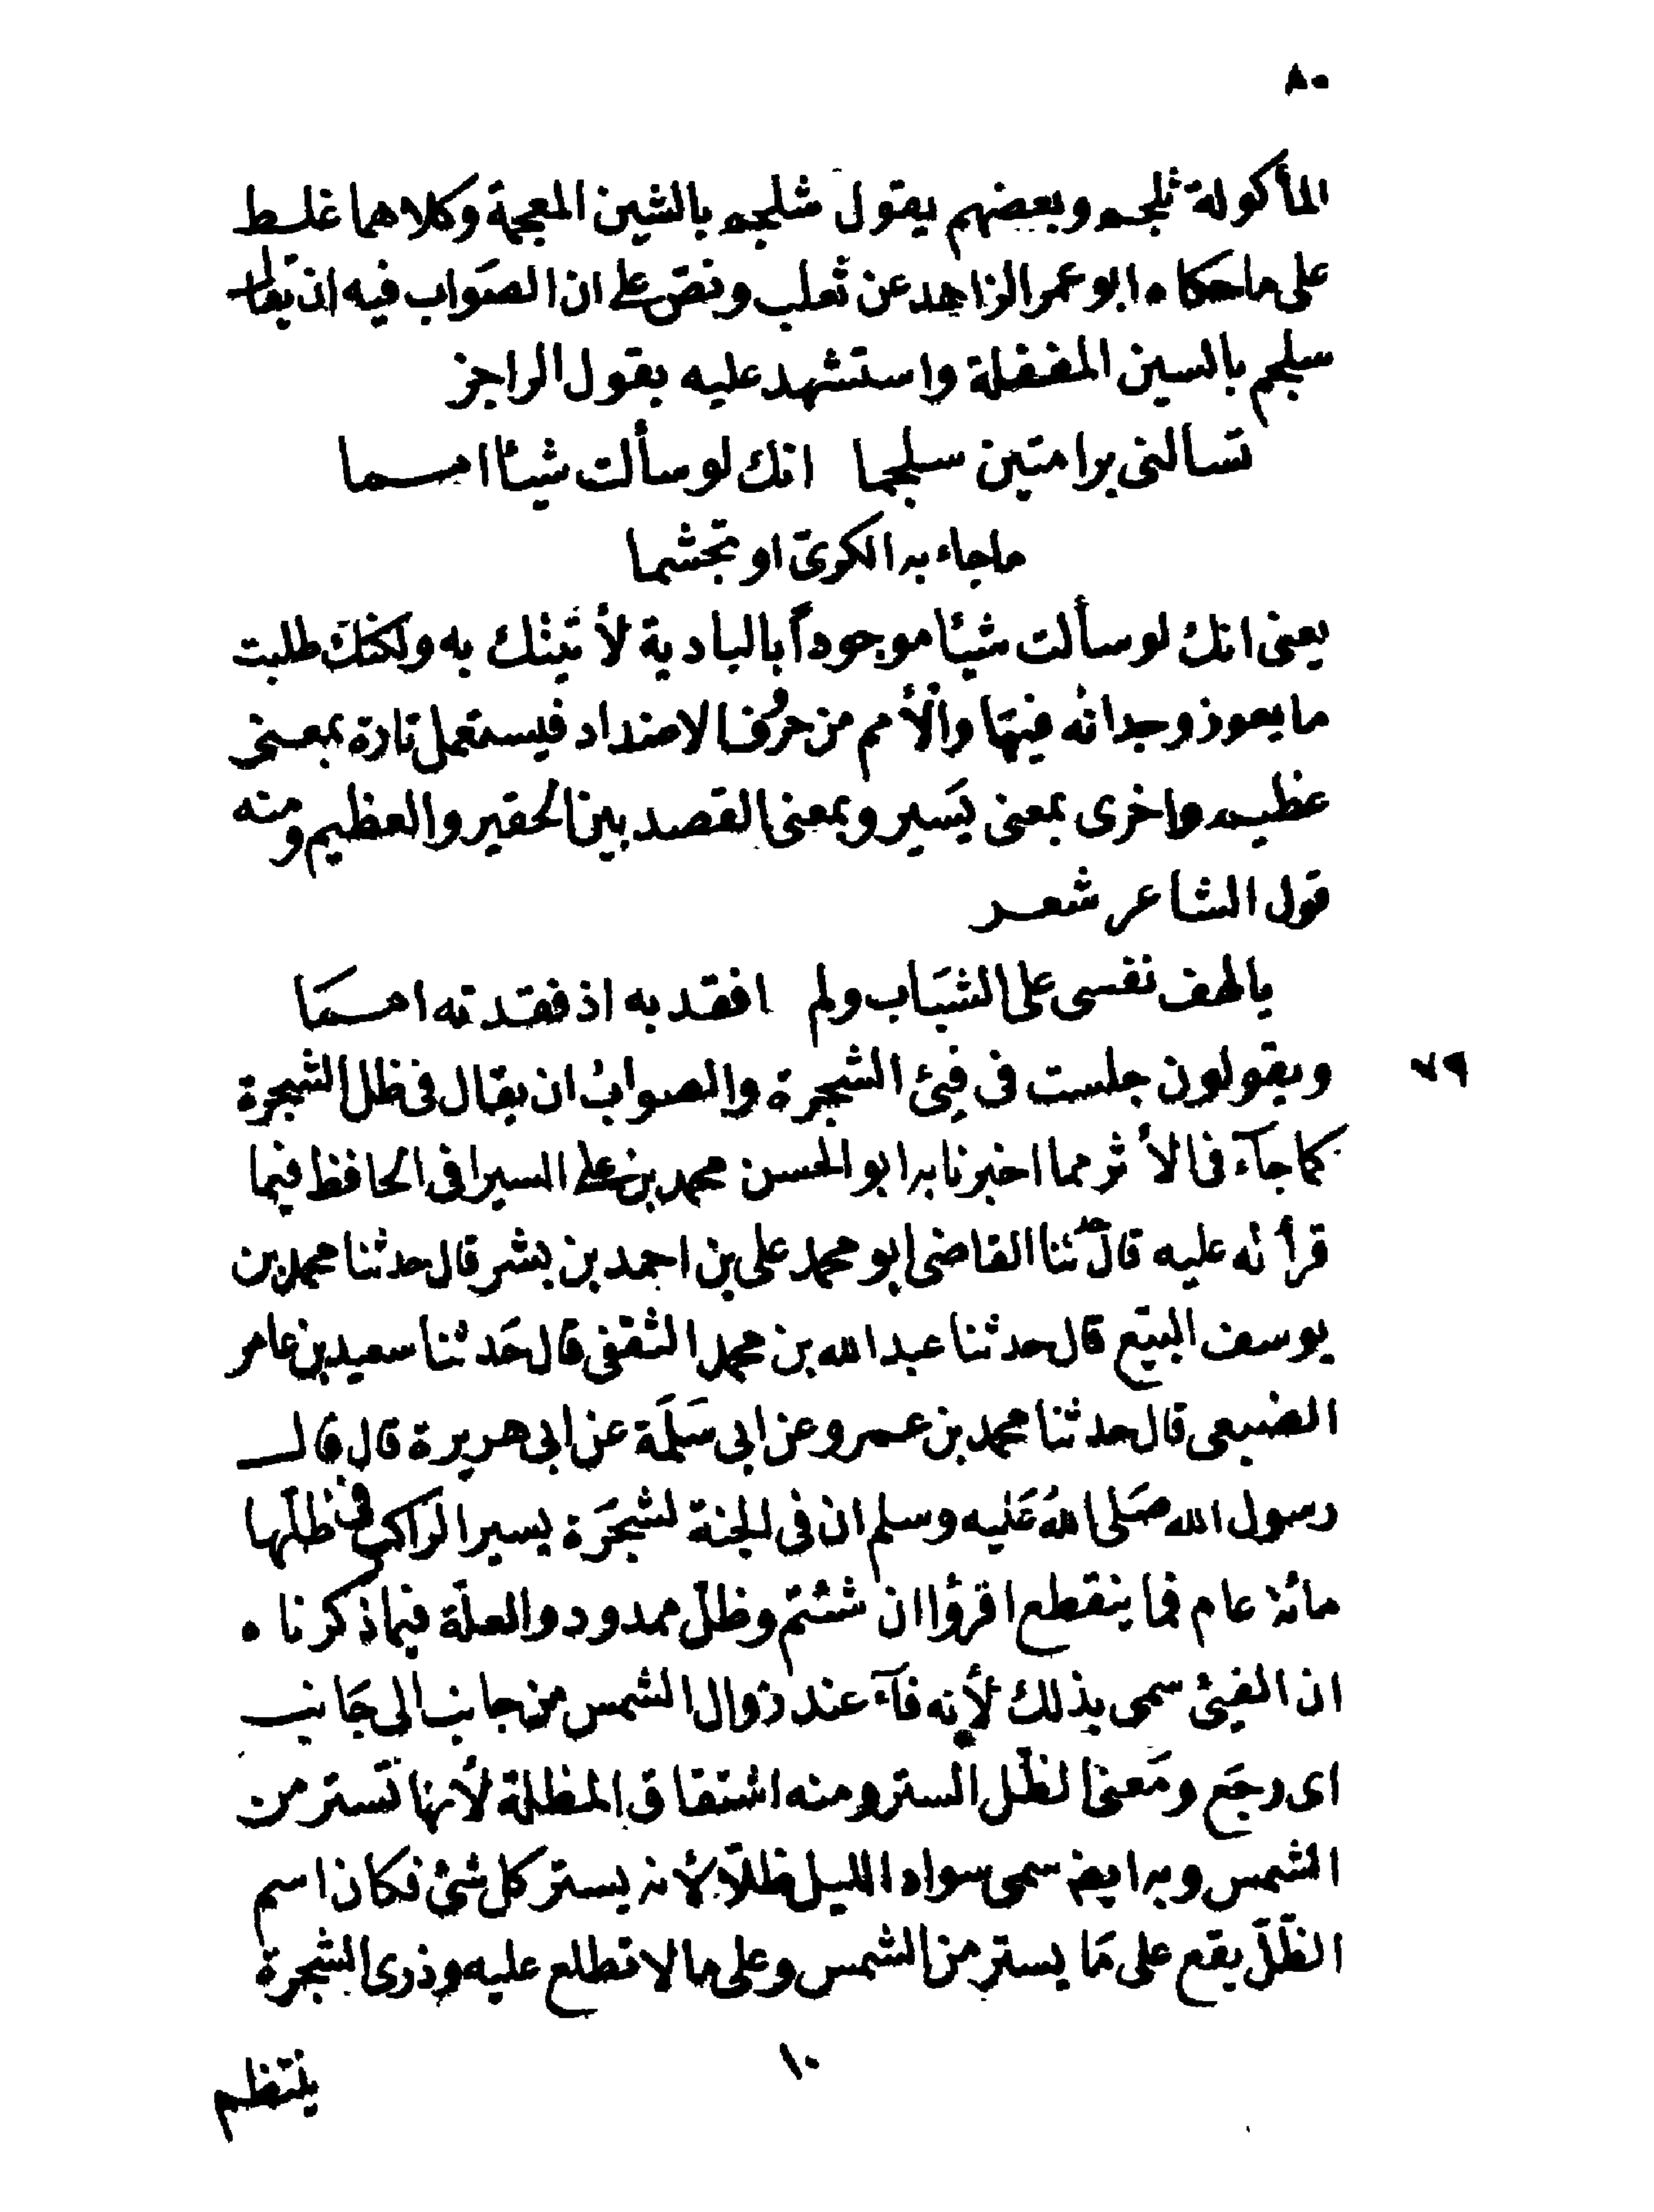 ٨٠
المأكولة ثلجم وبعضهم يقول شلجم بالشين المعجمة وكلاهما غلط
على ما حكاه ابو عمر الزاهد عن ثعلب ونص على ان الصَواب فيه ان يقال
سلجم بالسين المغفلة واستشهد عليه بقول الراجز
تسالنى برامتين سلجما انك لو سألت شيئا امما
ماجاء به الكرىّ او تجشما
يعنى انك لو سألت شيئا موجوداً بالبادية لأتيتك به ولكنك طلبت
ما يعوز وجدانه فيهَا والْأمم من حرُف الاضداد فيستعمل تارة بمعنى
عظيم واخرى بمعنى يَسير وبمعنى القصد بين الحقير والعظيم ومنه
قول الشاعر شعر
يالهف نفسى على الشبَاب ولم افقد به اذ فقدته اممَا
٧٩ ويقولون جلست فى فيئ الشجرة والصوابُ ان يقال فى ظل الشجرة
كما جآء فى الأثر مما اخبرنا به ابو الحسن محمد بن على السيرافى الحافظ فيما
قرأته عليه قال ثنا القاضى ابو محمد على بن احمد بن بشر قال حدثنا محمد بن
يوسف البيّع قال حدثنا عبد الله بن محمد الثقفى قال حَدثنا سعيد بن عامر
الضبعى قال حدثنا محمد بن عمرو عن ابى سَلَمَة عن ابى هريرة قال قال
رسول الله صَلى اللهُ عَليه وسلم ان فى الجنة لشجَرَة يسير الراكب فى ظلّها
مائة عام فما ينقطع اقرؤا ان شئتم وظلّ ممدود والعلّة فيما ذكرناه
ان الفيئ سمى بذلك لأنه فآء عند زوال الشمس من جانب الى جَانب
اى رجَع ومَعنى الظّل الستر ومنه اشتقاق المظلة لأنها تستر من
الشمس وبه ايضا سمى سواد الليل ظلّا لأنه يستر كل شئ فكان اسم
الظّلّ يقع على مَا يستر من الشمس وعلى ما لا تطلع عليه وذرى الشجرة
١٠
ينتظم